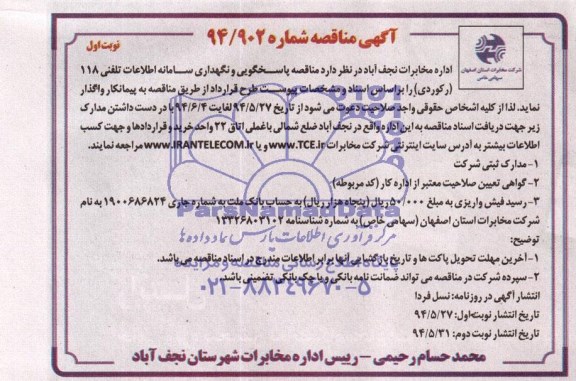 آگهی مناقصه شماره ۹۴/۹۰۲
نوبت اول
شرکت مخابرات استان اصفهان
سهامی خاص
اداره مخابرات نجف آباد در نظر دارد مناقصه پاسخگویی و نگهداری سامانه اطلاعات تلفنی ۱۱۸
(رکوردی) را بر اساس اسناد و مشخصات پیوست طرح قرارداد از طریق مناقصه به پیمانکار واگذار
نماید. لذا از کلیه اشخاص حقوقی واجد صلاحیت دعوت می شود از تاریخ ۹۴/۵/۲۷ لغایت ۹۴/۶/۴ با در دست داشتن مدارک
زیر جهت دریافت اسناد مناقصه به این اداره واقع در نجف آباد ضلع شمالی باغملی اتاق ۲۲ واحد خرید و قراردادها و جهت کسب
اطلاعات بیشتر به آدرس سایت اینترنتی شرکت مخابرات www.TCE.ir و یا www.IRANTELECOM.ir مراجعه نمایند.
۱- مدارک ثبتی شرکت
۲- گواهی تعیین صلاحیت معتبر از اداره کار (کد مربوطه)
۳- رسید فیش واریزی به مبلغ ۵۰/۰۰۰ ریال (پنجاه هزار ریال) به حساب بانک ملت به شماره جاری ۱۹۰۰۶۸۶۸۲۴ به نام
شرکت مخابرات استان اصفهان (سهامی خاص) به شماره شناسنامه ۱۳۳۲۶۸۰۳۱۰۲
توضیح:
۱- آخرین مهلت تحویل پاکت ها و تاریخ بازگشایی آنها برابر اطلاعات مندرج در اسناد مناقصه می باشد.
۲- سپرده شرکت در مناقصه می تواند ضمانت نامه بانکی و یا چک بانکی تضمینی باشد.
انتشار آگهی در روزنامه: نسل فردا
تاریخ انتشار نوبت اول: ۹۴/۵/۲۷
تاریخ انتشار نوبت دوم: ۹۴/۵/۳۱
محمد حسام رحیمی - رییس اداره مخابرات شهرستان نجف آباد
ParsNamadData
مرکز فرآوری اطلاعات پارس نماد داده ها
پایگاه اطلاع رسانی مناقصه و مزایده
۰۲۱-۸۸۳۴۹۶۷۰-۵